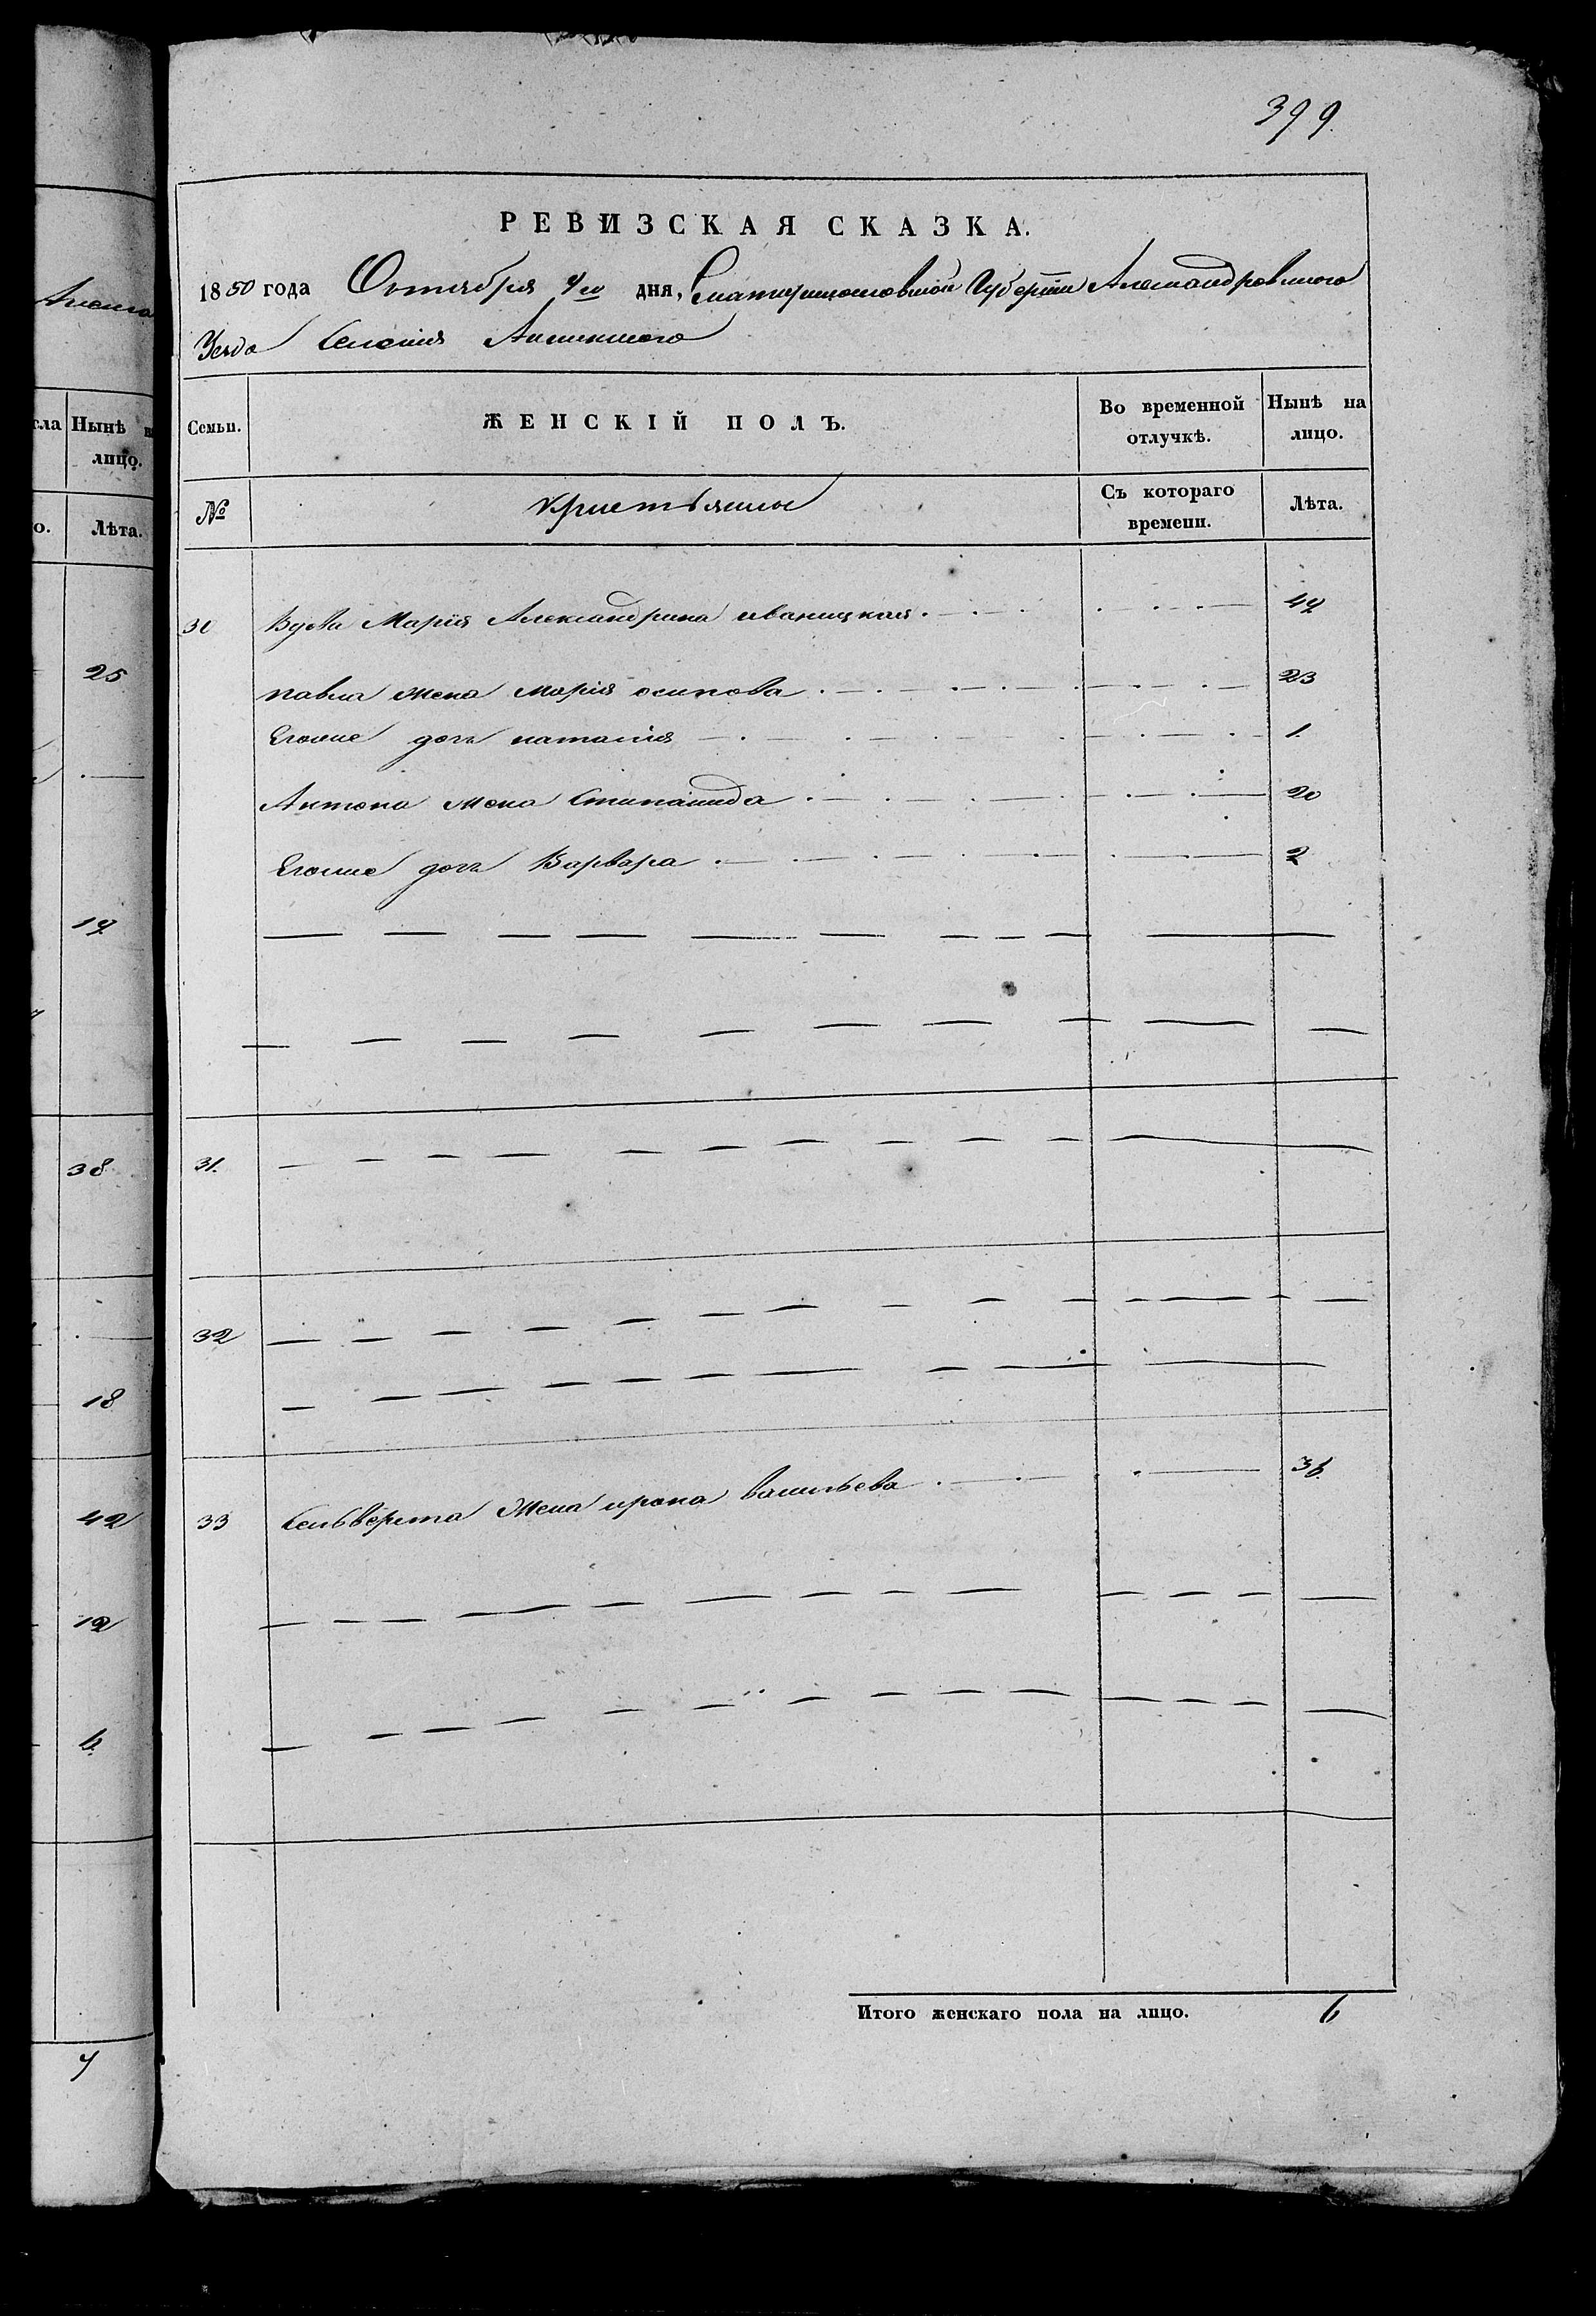 399.
РЕВИЗСКАЯ СКАЗКА.
1850 года Октября 4го дня, Екатеринославской Губерніи Александровского
Уезда Селенія
Семьи. ЖЕНСКІЙ ПОЛЪ. Во временной отлучкѣ. Нынѣ на лицо.
№ Крестьяны Съ котораго времени. Лѣта.
30 Вдова Марія Александрина иваницкая 49
павла жена марія осипова 23
Егоже дочь наталия 1.
Антона жена Степанида 20
Егоже дочь Варвара 2
31.
32
33 жена ирона васильева 36
Итого женскаго пола на лицо. 6
Нынѣ
лицо.
Лѣта.
25
19
38
18
42
12
6.